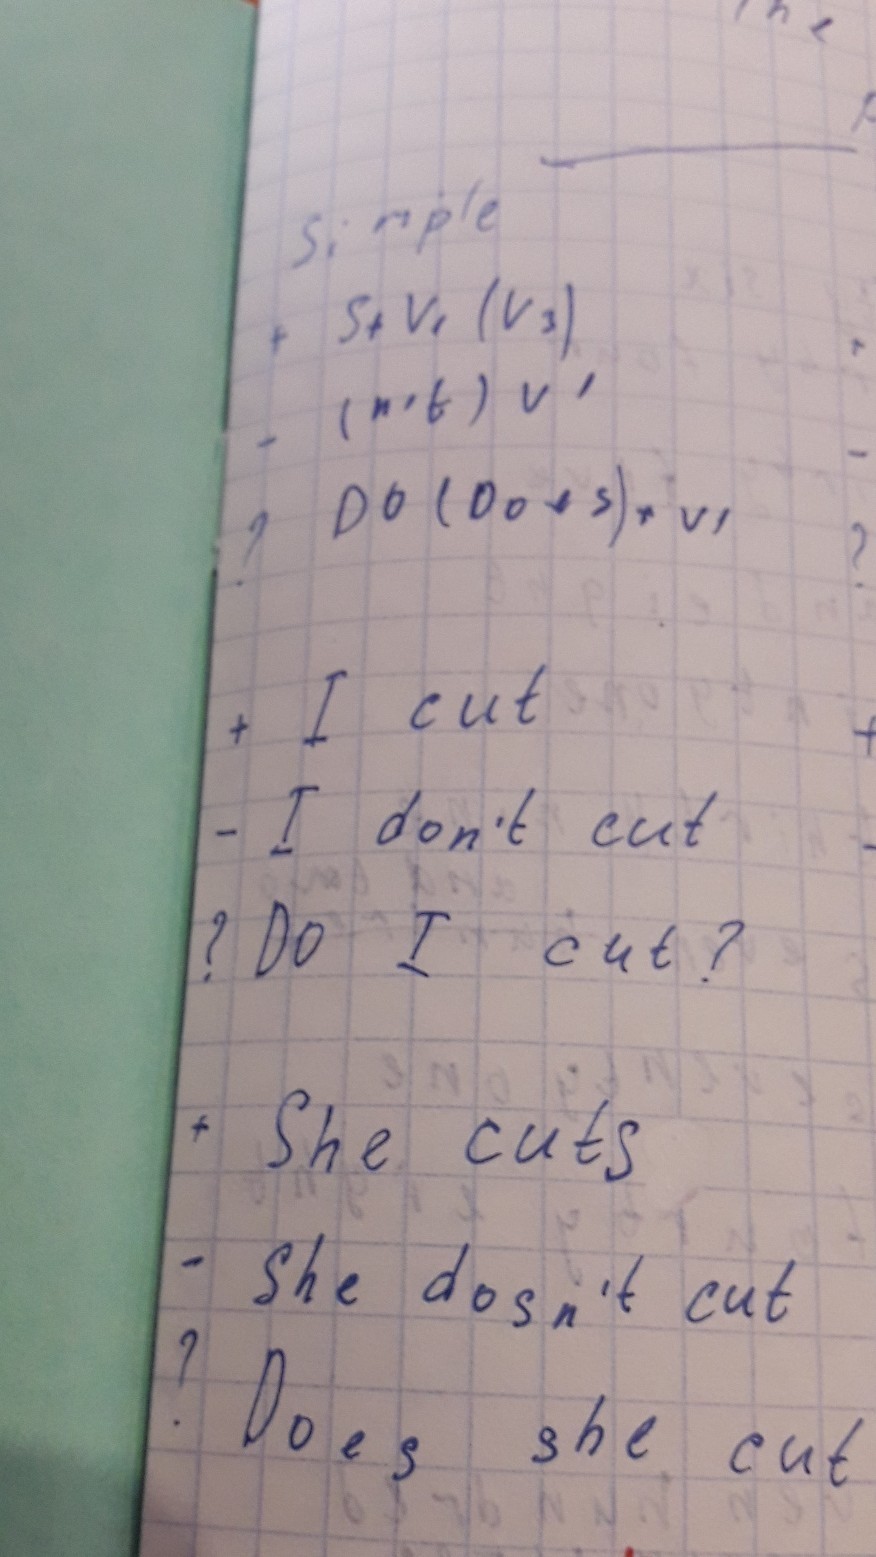 The
Simple
+ S+V1 (Vs)
- (n't) V1
? DO (Does)+ V1
+ I cut
- I don't cut
? Do I cut?
+ She cuts
- She dosn't cut
? Does she cut